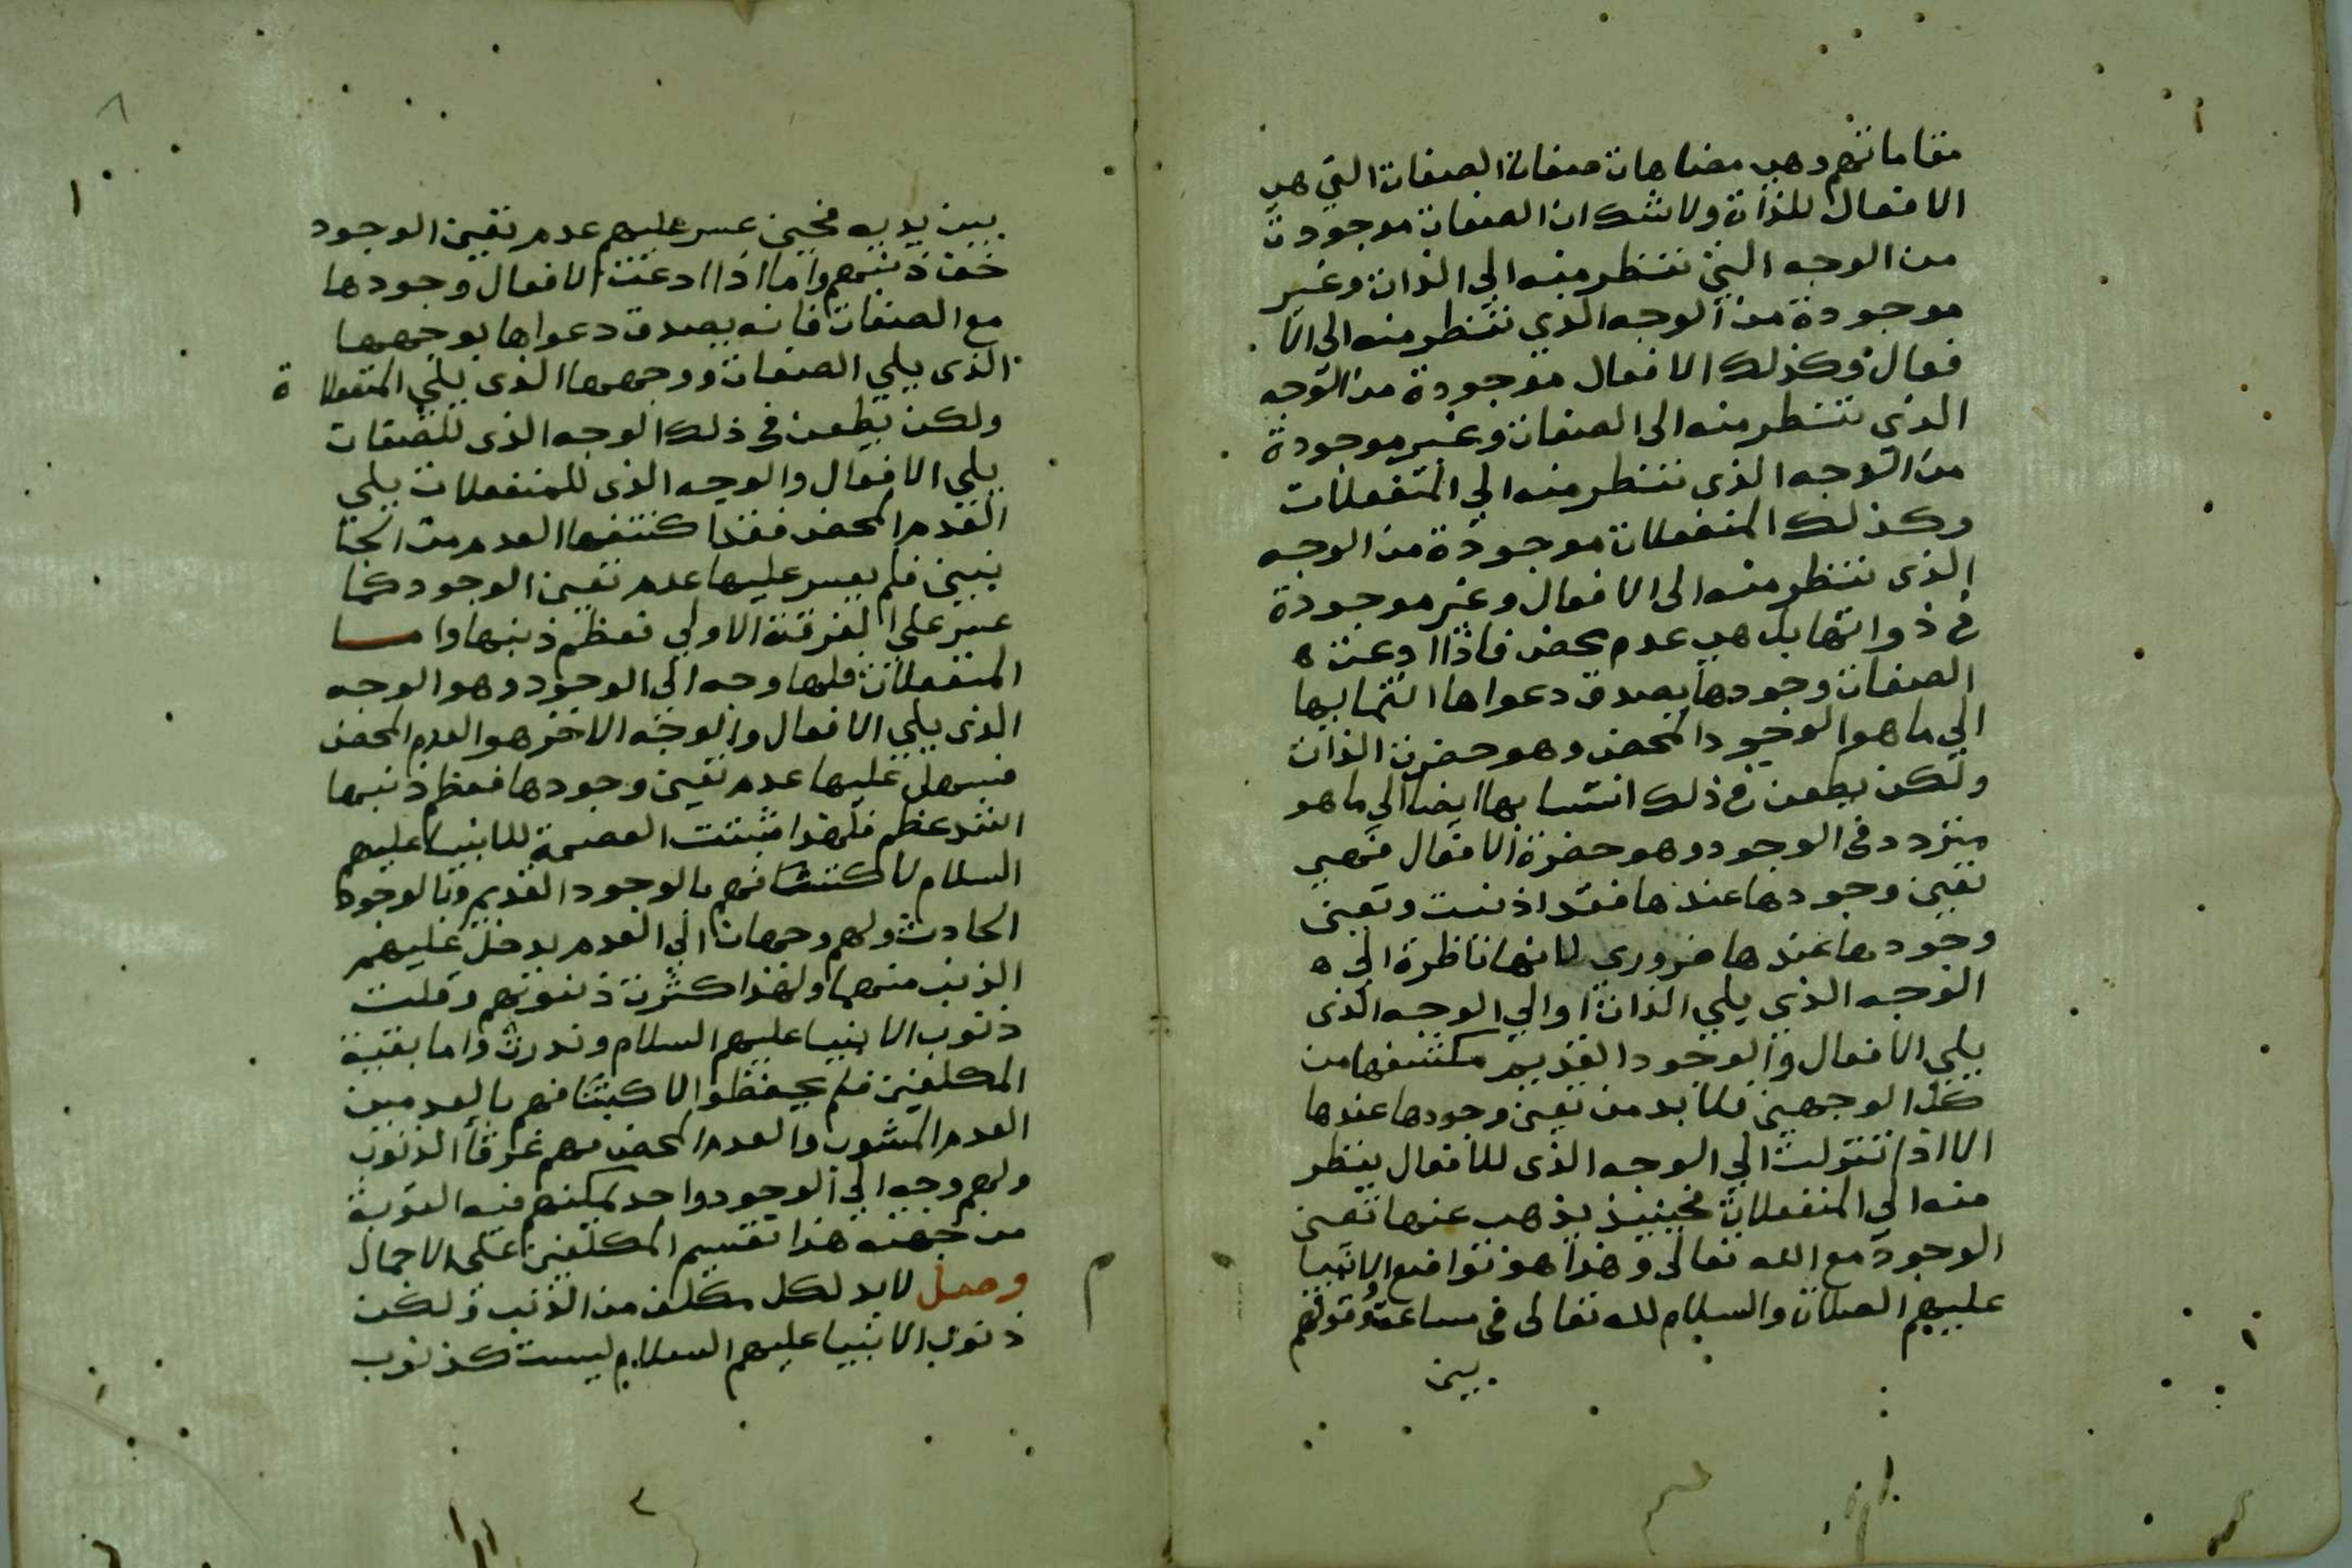 مقاماتهم وهي مضاهات صفات الصفات التي هي
الافعال للذات ولاشك ان الصفات موجودة
من الوجه التي تنظر منه الي الذات وغير
موجودة من الوجه الذي تنظر منه الى الا
فعال وكذلك الافعال موجودة من الوجه
الذى تنظر منه الى الصفات وغير موجودة
من الوجه الذى تنظر منه الي المنفعلات
وكذلك المنفعلات موجودة من الوجه
الذى تنظر منه الى الافعال وغير موجودة
في ذواتها بل هي عدم محض فاذا ادعت ه
الصفات وجودها يصدق دعواها انتسابها
الي ما هو الوجود المحض وهو حضرت الذات
ولكن يطعن في ذلك انتسابها ايضا الي ما هو
متردد في الوجود وهو حضرة الافعال فهي
تعين وجودها عندها فقد اذنبت وتعين
وجودها عندها ضروري لانها ناظرة الي ه
الوجه الذي يلي الذات او الي الوجه الذى
يلي الافعال والوجود القديم مكتنفها من
كلا الوجهين فلا بد من تعين وجودها عندها
الا اذا تنزلت الي الوجه الذى للافعال ينظر
منه الي المنفعلات فحينئذ يذهب عنها تعين
الوجود مع الله تعالى وهذا هو تواضع الانبيا
عليهم الصلاة والسلام لله تعالى في ساعة وقوفهم
بين
بين يديه فحين عسر عليهم عدم تعين الوجود
خف ذنبهم واما اذا ادعت الافعال وجودها
مع الصفات فانه يصدق دعواها بوجهها
الذى يلي الصفات ووجهها الذى يلي المنفعلا ة
ولكن يطعن في ذلك الوجه الذى للصفات
يلي الافعال والوجه الذى للمنفعلات يلي
العدم المحض فقد اكتنفها العدم من الجا
نبين فلم يعسر عليها عدم تعين الوجود كما
عسر على الفرقة الاولي فعظم ذنبها واما
المنفعلات فلها وجه الي الوجود وهو الوجه
الذى يلي الافعال والوجه الاخر هو العدم المحض
فسهل عليها عدم تعين وجودها فعظم ذنبها
اشد عظم فلهذا ثبتت العصمة للانبيا عليهم
السلام لاكتنافهم بالوجود القديم وبالوجود
الحادث ولهم وجهان الي العدم يدخل عليهم
الذنب منهما ولهذا كثرت ذنوبهم وقلت
ذنوب الانبيا عليهم السلام وندرت واما بقية
المكلفين فلم يحفظوا لاكتنافهم بالعدمين
العدم المشوب والعدم المحض فهم غرقا الذنوب
ولهم وجه الي الوجود واحد يمكنهم فيه التوبة
من جهته هذا تقسيم المكلفين على الاجمال
وصل لا بد لكل مكلف من الذنب ولكن
ذنوب الانبيا عليهم السلام ليست كذنوب